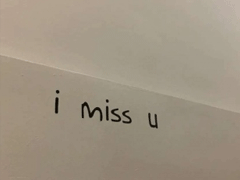 i miss u